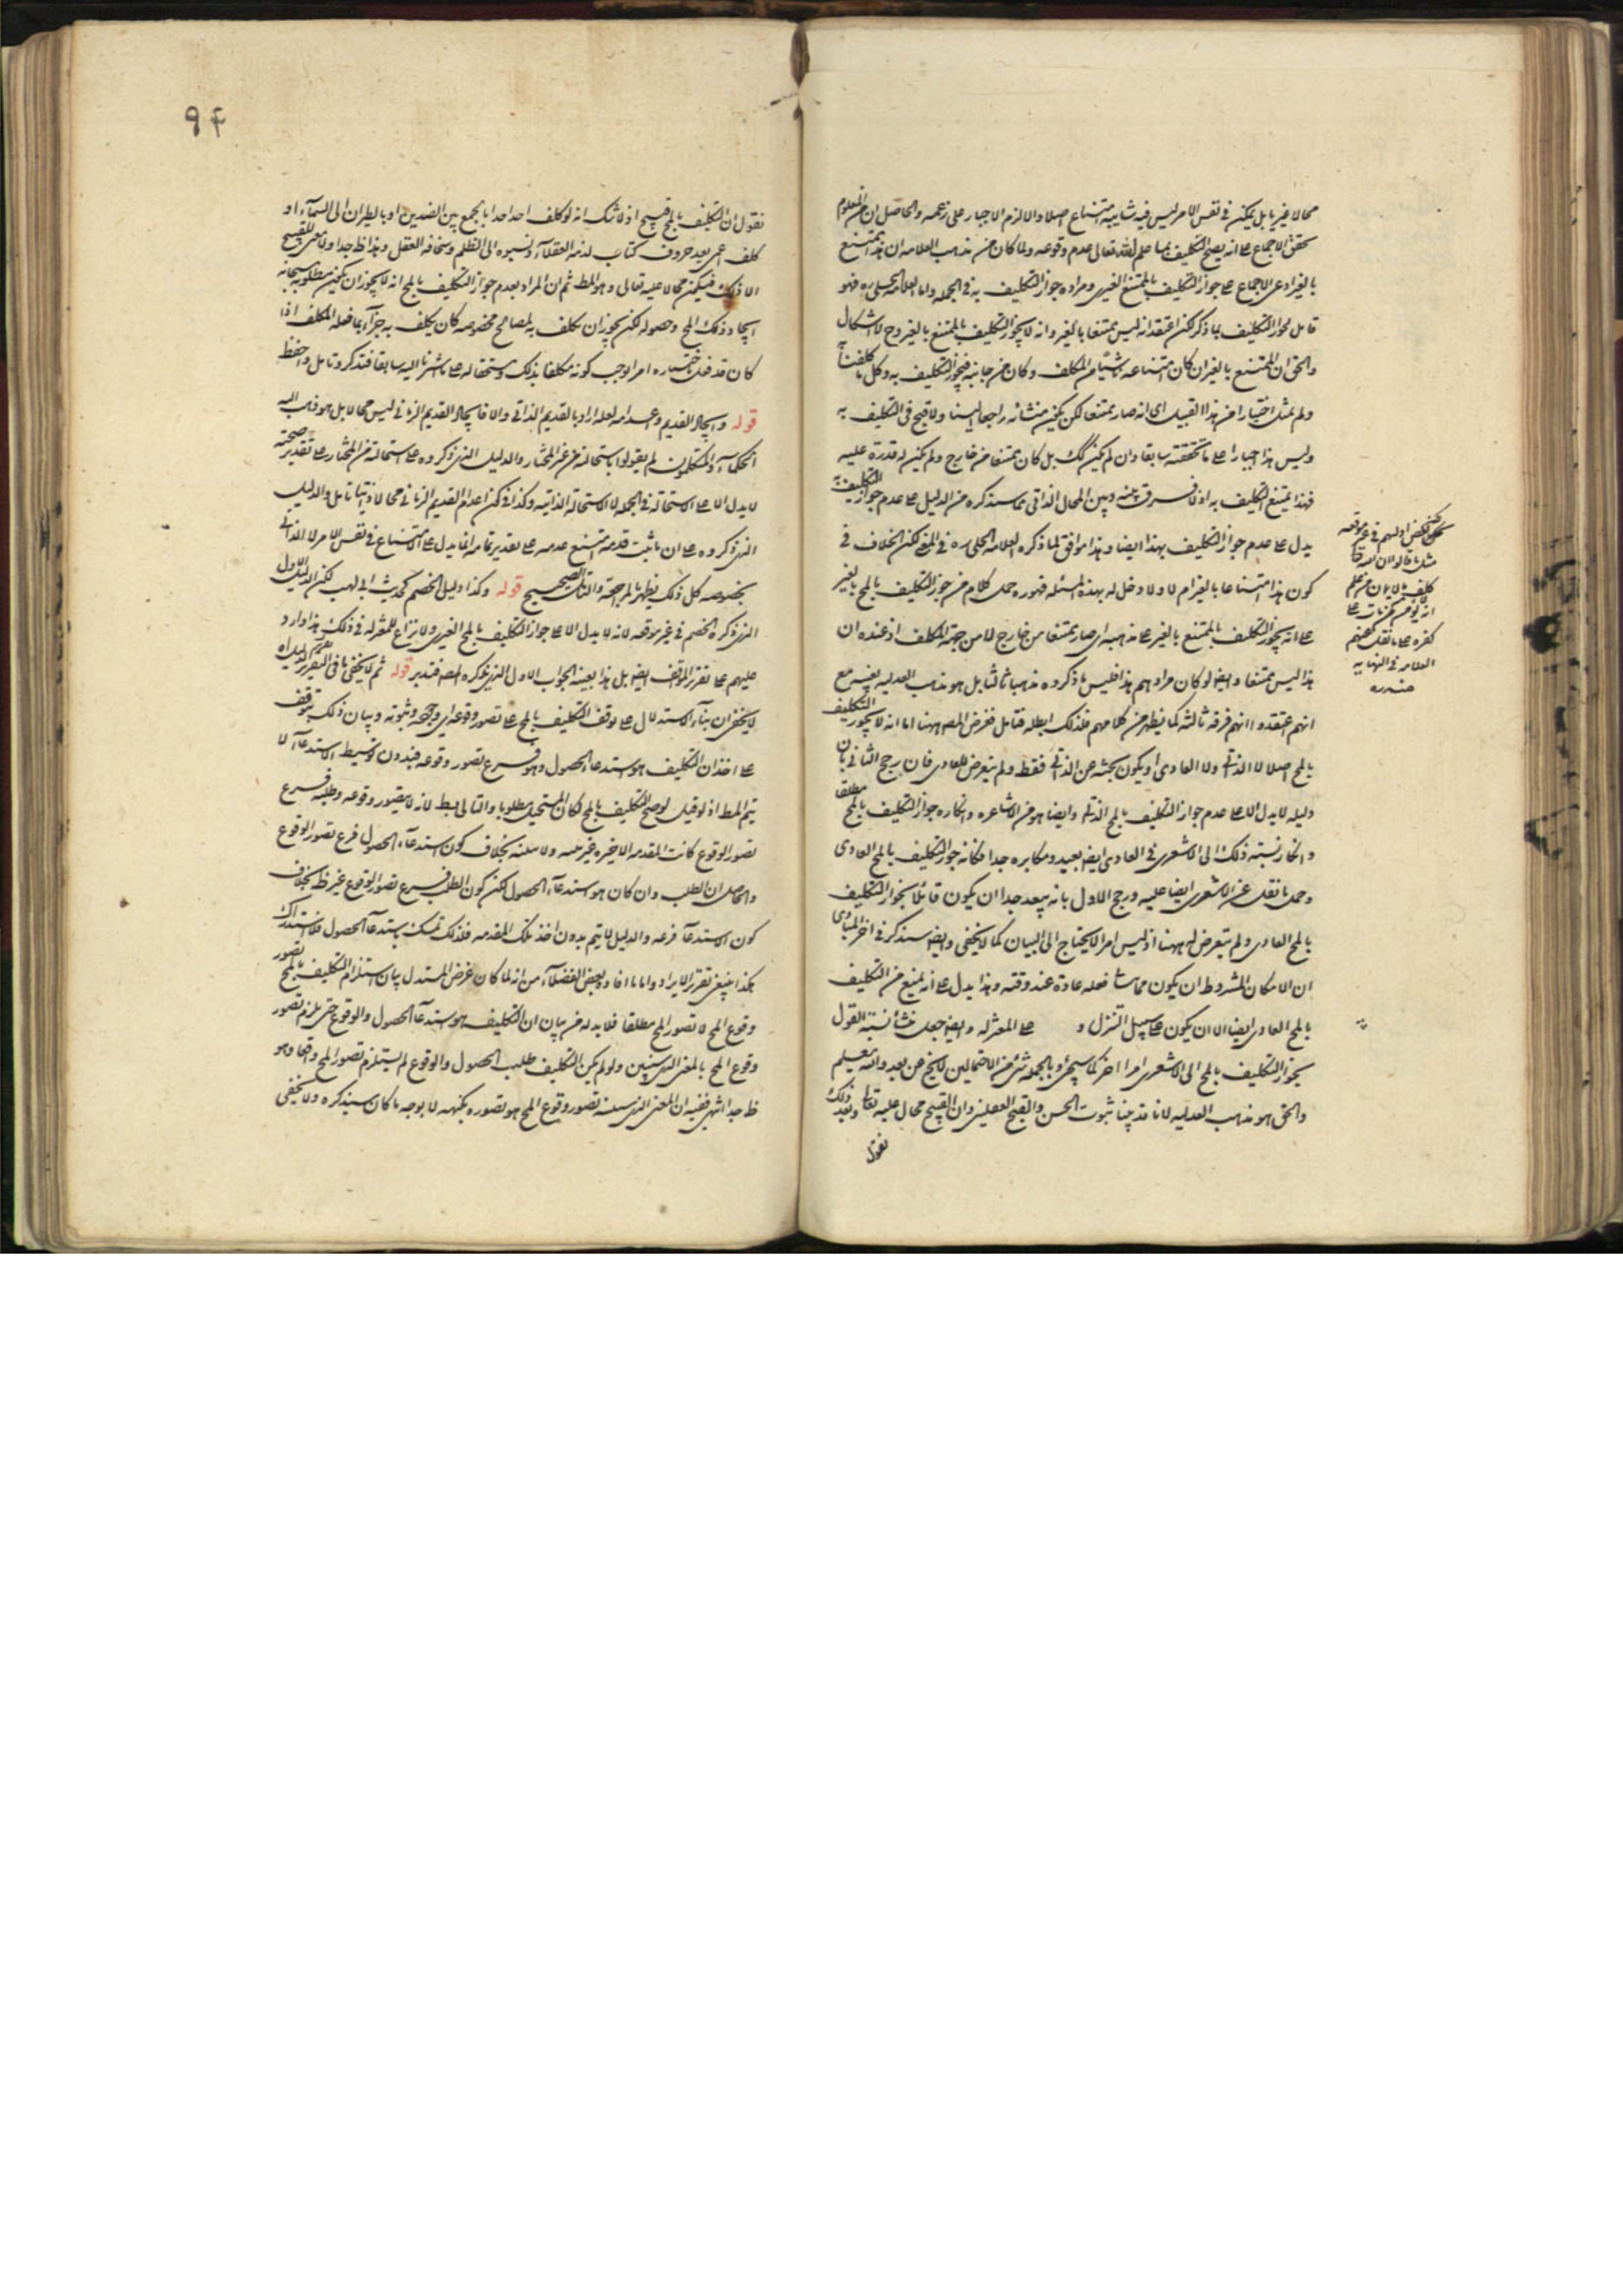 محالا غيريا بل يمكن في نفس الامر ليس فيه شايبة امتناع اصلا والا لزم الاجبار على زعمه والحاصل ان من المعلوم
تحقق الاجماع على انه يصح التكليف بما علم الله تعالى عدم وقوعه ولما كان من مذهب العلامه ان هذا ممتنع
بالغير ادعى الاجماع على جواز التكليف بالممتنع الغيري ومراده جواز التكليف به في الجمله واما العلامه الحلي ره فهو
قايل بجواز التكليف بما ذكر لكن اعتقد انه ليس ممتنعا بالغير وانه لا يجوز التكليف بالممتنع بالغير وح لا اشكال
والحق ان الممتنع بالغير ان كان امتناعه ناشيا من المكلف وكان من جانبه فيجوز التكليف به وكل ما كلفنا به
ولم نمتثل اختيارا من هذا القبيل اى انه صار ممتنعا لكن يكون منشائه راجعا الينا ولا قبح في التكليف به
وليس هذا اجبارا على ما تحققته سابقا وان لم يكن كك بل كان ممتنعا من خارج ولم يكن له قدرة عليه
فهذا يمتنع التكليف به اذ لا فرق بينه وبين المحال الذاتي مما سنذكره من الدليل على عدم جواز التكليف به
يدل على عدم جواز التكليف بهذا ايضا وهذا موافق لما ذكره العلامه الحلي ره في المعنى لكن الخلاف في
كون هذا امتناعا بالغير ام لا ولا دخل له بهذه المسئله فهو ره حمل كلام من جوز التكليف بالمح بالغير
على انه يجوز التكليف بالممتنع بالغير على مذهبه اى صار ممتنعا من خارج لا من جهة المكلف اذ عنده ان
هذا ليس ممتنعا وايض لو كان مرادهم هذا فليس ما ذكروه مذهبا ثالثا بل هو مذهب العدليه بعينه مع
انهم اعتقدوا انهم فرقه ثالثه كما يظهر من كلامهم فلذلك ابطله فتامل فغرض المص ههنا اما انه لا يجوز التكليف
بالمح اصلا لا الذاتي ولا العادي او يكون بحثه عن الذاتي فقط ولم يتعرض للعادي فان رجح الثاني بان
دليله لا يدل الا على عدم جواز التكليف بالمح الذاتي وايضا هو من الاشاعره وانكاره جواز التكليف بالمح مطلقا
وانكار نسبة ذلك الى الاشعري في العادي ايض بعيد ومكابره جدا فكانه جوز التكليف بالمح العادي
وحمل ما نقل عن الاشعري ايضا عليه ورجح الاول بانه يبعد جدا ان يكون قائلا بجواز التكليف
بالمح العادي ولم يتعرض له ههنا اذ ليس امرا لا يحتاج الى البيان كما لا يخفى وايض سنذكر في اخر المبادي
ان الامكان المشروط ان يكون مما يتأتى فعله عادة عند وقته وهذا يدل على انه يمنع من التكليف
بالمح العادي ايضا الا ان يكون على سبيل التنزل و على المعتزله وايض جعل منشأ نسبة القول
بجواز التكليف بالمح الى الاشعري امرا اخر كما سيجئ وبالجمله شئ من الاحتمالين لا يخ عن بعد والله يعلم
والحق هو مذهب العدليه لانا قد بينا ثبوت الحسن والقبح العقليين وان القبيح محال عليه تعالى وبعد ذلك
نقول
لكن اولهم في غير موقعه
مثل ما قالوا ان الله تعالى
كلف بالايمان من علم
انه لا يؤمن كمن مات على
كفره على ما نقل عنهم
العلامه في النهايه
منه ره
94
نقول ان التكليف بالمح قبيح اذ لا شك انه لو كلف احد احدا بالجمع بين الضدين او بالطيران الى السمآء او
كلف اعمى بعد حروف كتاب لذمه العقلآء ونسبوه الى الظلم وسخافة العقل وهذا ظ جدا ولا معنى للقبيح
الا ذلك فيكون محالا عليه تعالى وهو المط ثم ان المراد بعدم جواز التكليف بالمح انه لا يجوز ان يكون مطلوبه سبحانه
ايجاد ذلك المح وحصوله لكن يجوز ان يكلف به لمصالح مخصوصه كان يكلف به جزآء بما فعله المكلف اذا
كان قد فعل باختياره امرا اوجب كونه مكلفا بذلك واستحقاله على ما اشرنا اليه سابقا فتذكر وتامل واحفظ
قوله وايجاد القديم واعدامه لعله اراد بالقديم الذاتي والا فايجاد القديم الزماني ليس محالا بل هو ذهب اليه
الحكمآء والمتكلمون لم يقولوا باستحالته من غير المختار والدليل الذي ذكروه على استحالته من المختار على تقدير صحته
لا يدل الا على الاستحالة في الجمله لا الاستحالة الذاتيه وكذا في كون اعدام القديم الزماني محالا ذاتيا تامل والدليل
الذي ذكروه على ان ما ثبت قدمه امتنع عدمه على تقدير تمامه انما يدل على الامتناع في نفس الامر لا الذاتي
بخصوصه كل ذلك يظهر بالمراجعة والتامل الصحيح قوله وكذا دليل الخصم كحديث ابي لهب لكن الدليل الاول
الذي ذكره الخصم في غير موقعه لانه لا يدل الا على جواز التكليف بالمح الغيري ولا نزاع للمعتزله في ذلك هذا وارد
عليهم على تقرير المواقف ايض بل هذا بعينه الجواب الاول الذي يذكره المص فتدبر قوله ثم لا يخفى ما في التقرير لدليله
لا يخفى ان بنآء الاستدلال على توقف التكليف بالمح على تصور وقوعه اى وجوده وثبوته وبيان ذلك يتوقف
على اخذ ان التكليف هو استدعاء الحصول وهو فرع تصور وقوعه فبدون توسيط الاستدعآء لا
يتم المط اذ لو قيل لو صح التكليف بالمح لكان المستحيل مطلوبا والتالي بط لانه لا يتصور وقوعه وطلبه فرع
تصور الوقوع كانت المقدمه الاخيره غير بينه ولا مبينه بخلاف كون استدعآء الحصول فرع تصور الوقوع
والحاصل ان الطلب وان كان هو استدعآء الحصول لكن كون الطلب فرع تصور الوقوع غير ظ بخلاف
كون الاستدعآء فرعه والدليل لا يتم بدون اخذ تلك المقدمه فلذلك تمسك باستدعآء الحصول فلا استدراك
هكذا ينبغي تقرير الايراد واما ما افاده بعض الفضلآء من انه لما كان غرض المستدل بيان استلزام التكليف بالمح تصور
وقوع المح لا تصور المح مطلقا فلا بد له من بيان ان التكليف هو استدعآء الحصول والوقوع حتى يلزم تصور
وقوع المح بالمعنى الذي سنبين ولو لم يكن التكليف طلب الحصول والوقوع لم يستلزم تصور المح واقعا وهو
ظ جدا انتهى ففيه ان المعنى الذي سنبينه لتصور وقوع المح هو تصوره بكنهه لا بوجه ما كان سيذكره ولا يخفى